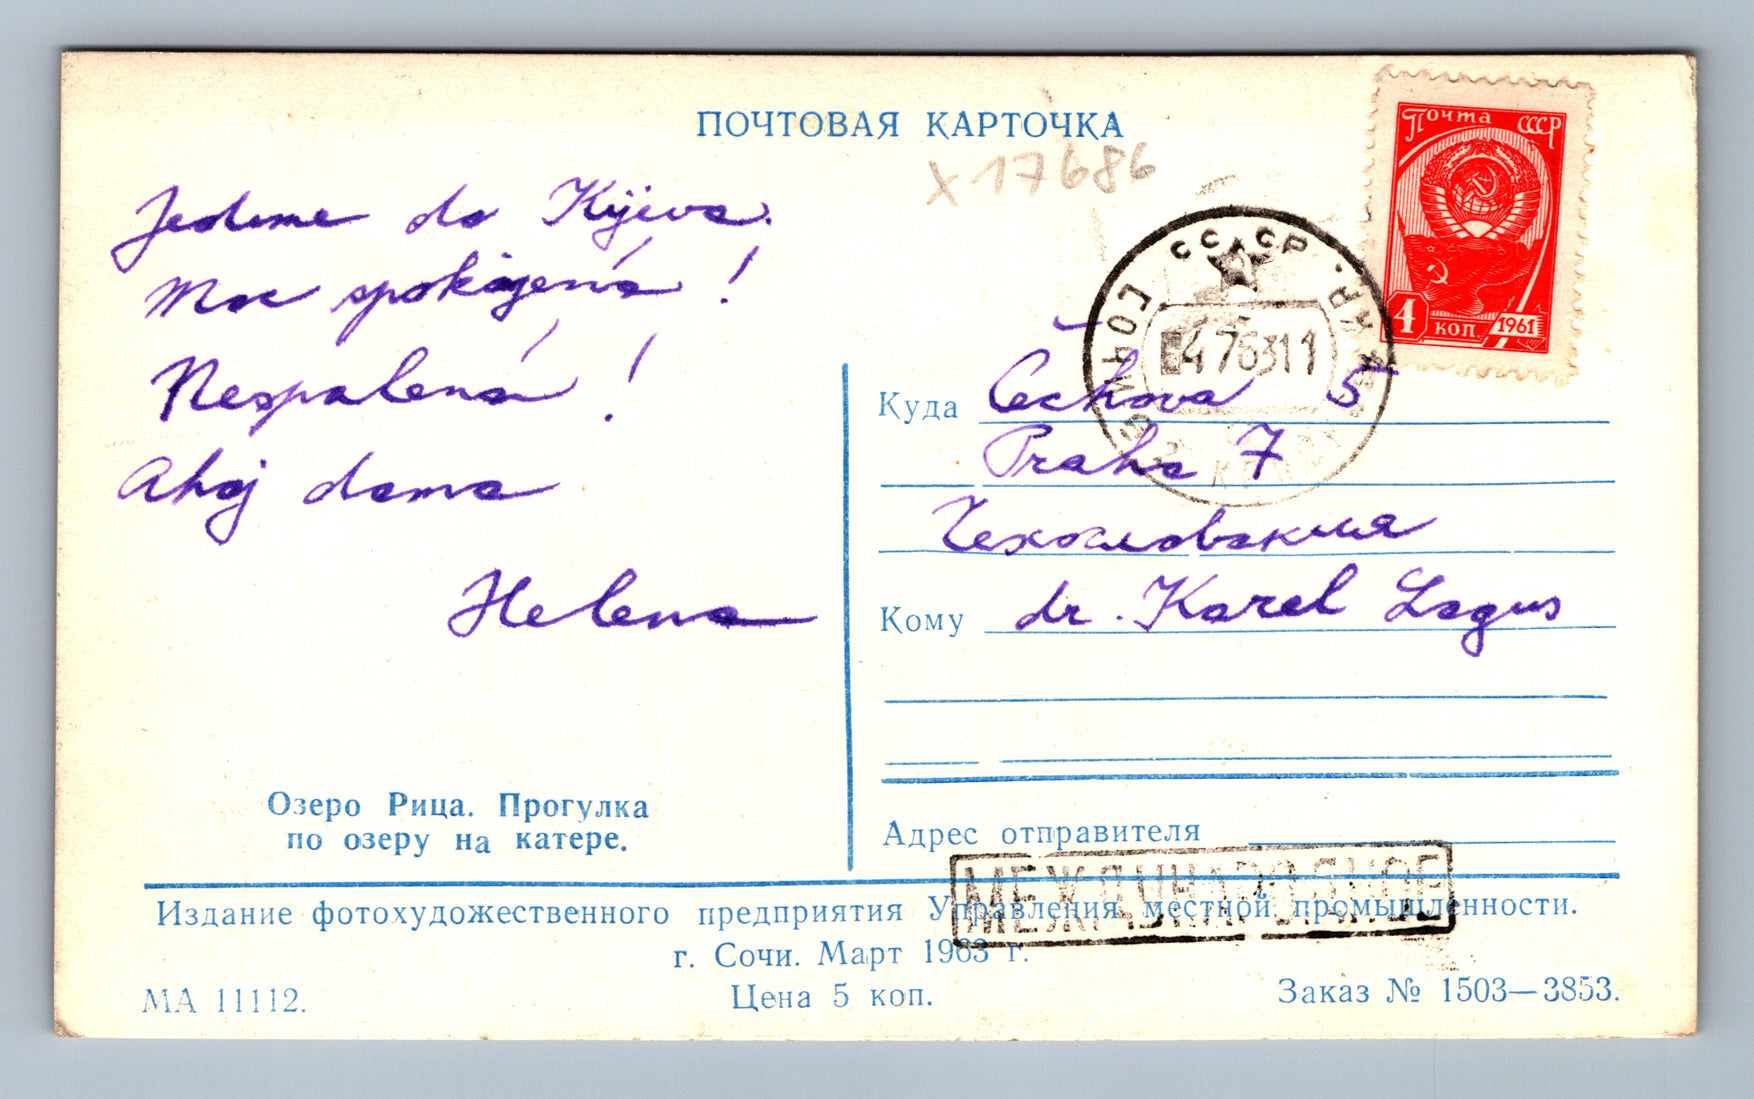 ПОЧТОВАЯ КАРТОЧКА
x 17686
Почта СССР
4 КОП 1961
СССР
4 7 63 11
Jedeme do Kyjeva.
Moc spokojená!
Nespalená!
Ahoj doma
Helena
Куда Čechova 5
Praha 7
Чехословакия
Кому dr. Karel Lagus
Озеро Рица. Прогулка
по озеру на катере.
Адрес отправителя
МЕЖДУНАРОДНОЕ
Издание фотохудожественного предприятия Управления местной промышленности.
г. Сочи. Март 1963 г.
МА 11112.
Цена 5 коп.
Заказ № 1503—3853.